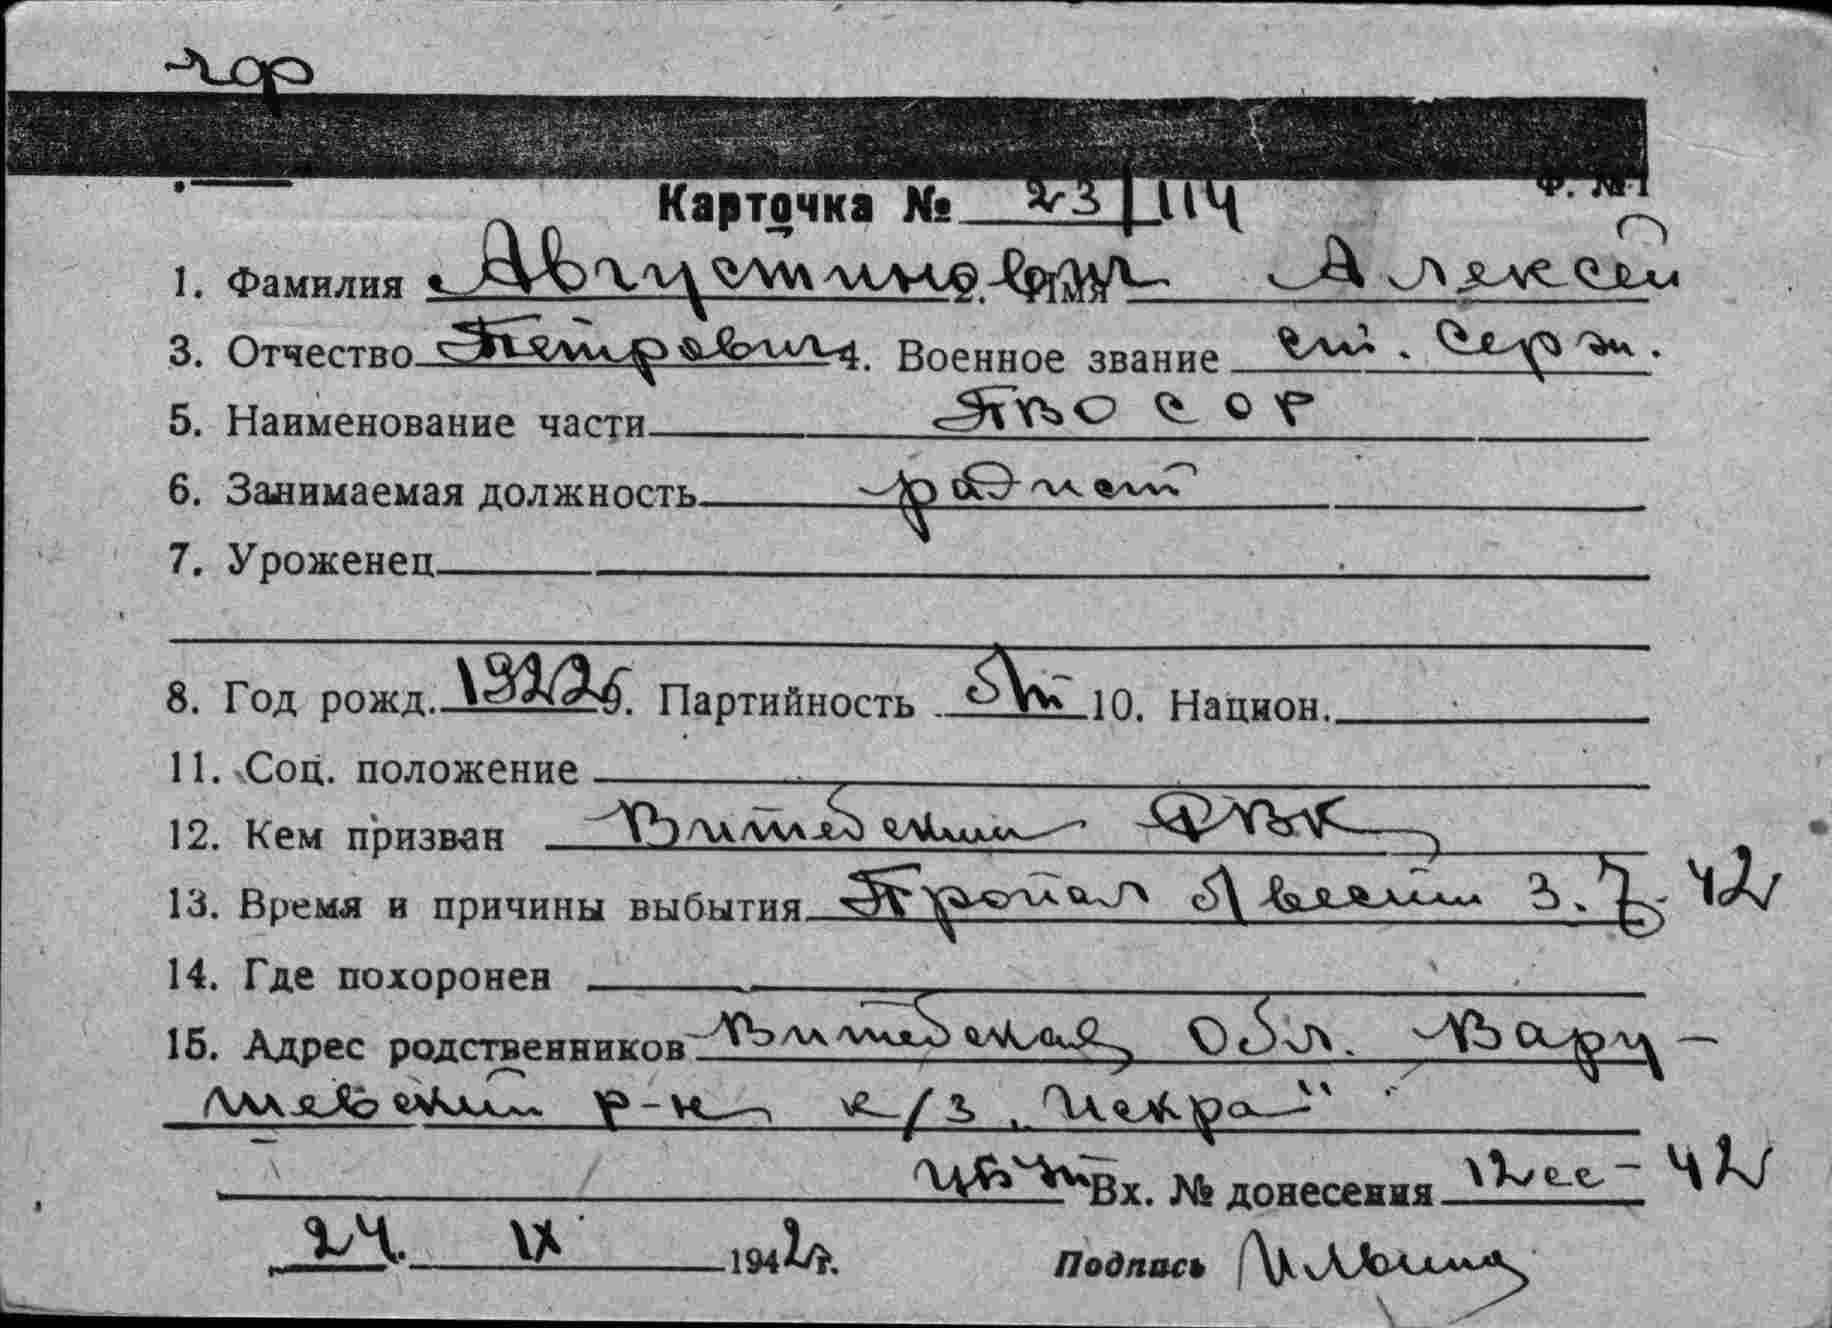 чор
Ф. №1
Карточка № 23/114
1. Фамилия Августинович 2. Имя Алексей
3. Отчество Петрович 4. Военное звание ст. серж.
5. Наименование части
6. Занимаемая должность радист
7. Уроженец
8. Год рожд. 1922 9. Партийность 10. Национ.
11. Соц. положение
12. Кем призван Витебским РВК
13. Время и причины выбытия Пропал вести 3.7.42
14. Где похоронен
15. Адрес родственников Витебская обл. Вару-
шевский р-н к/з "Искра"
Вх. № донесения 12сс-42
24. IX 1942 г. Подпись